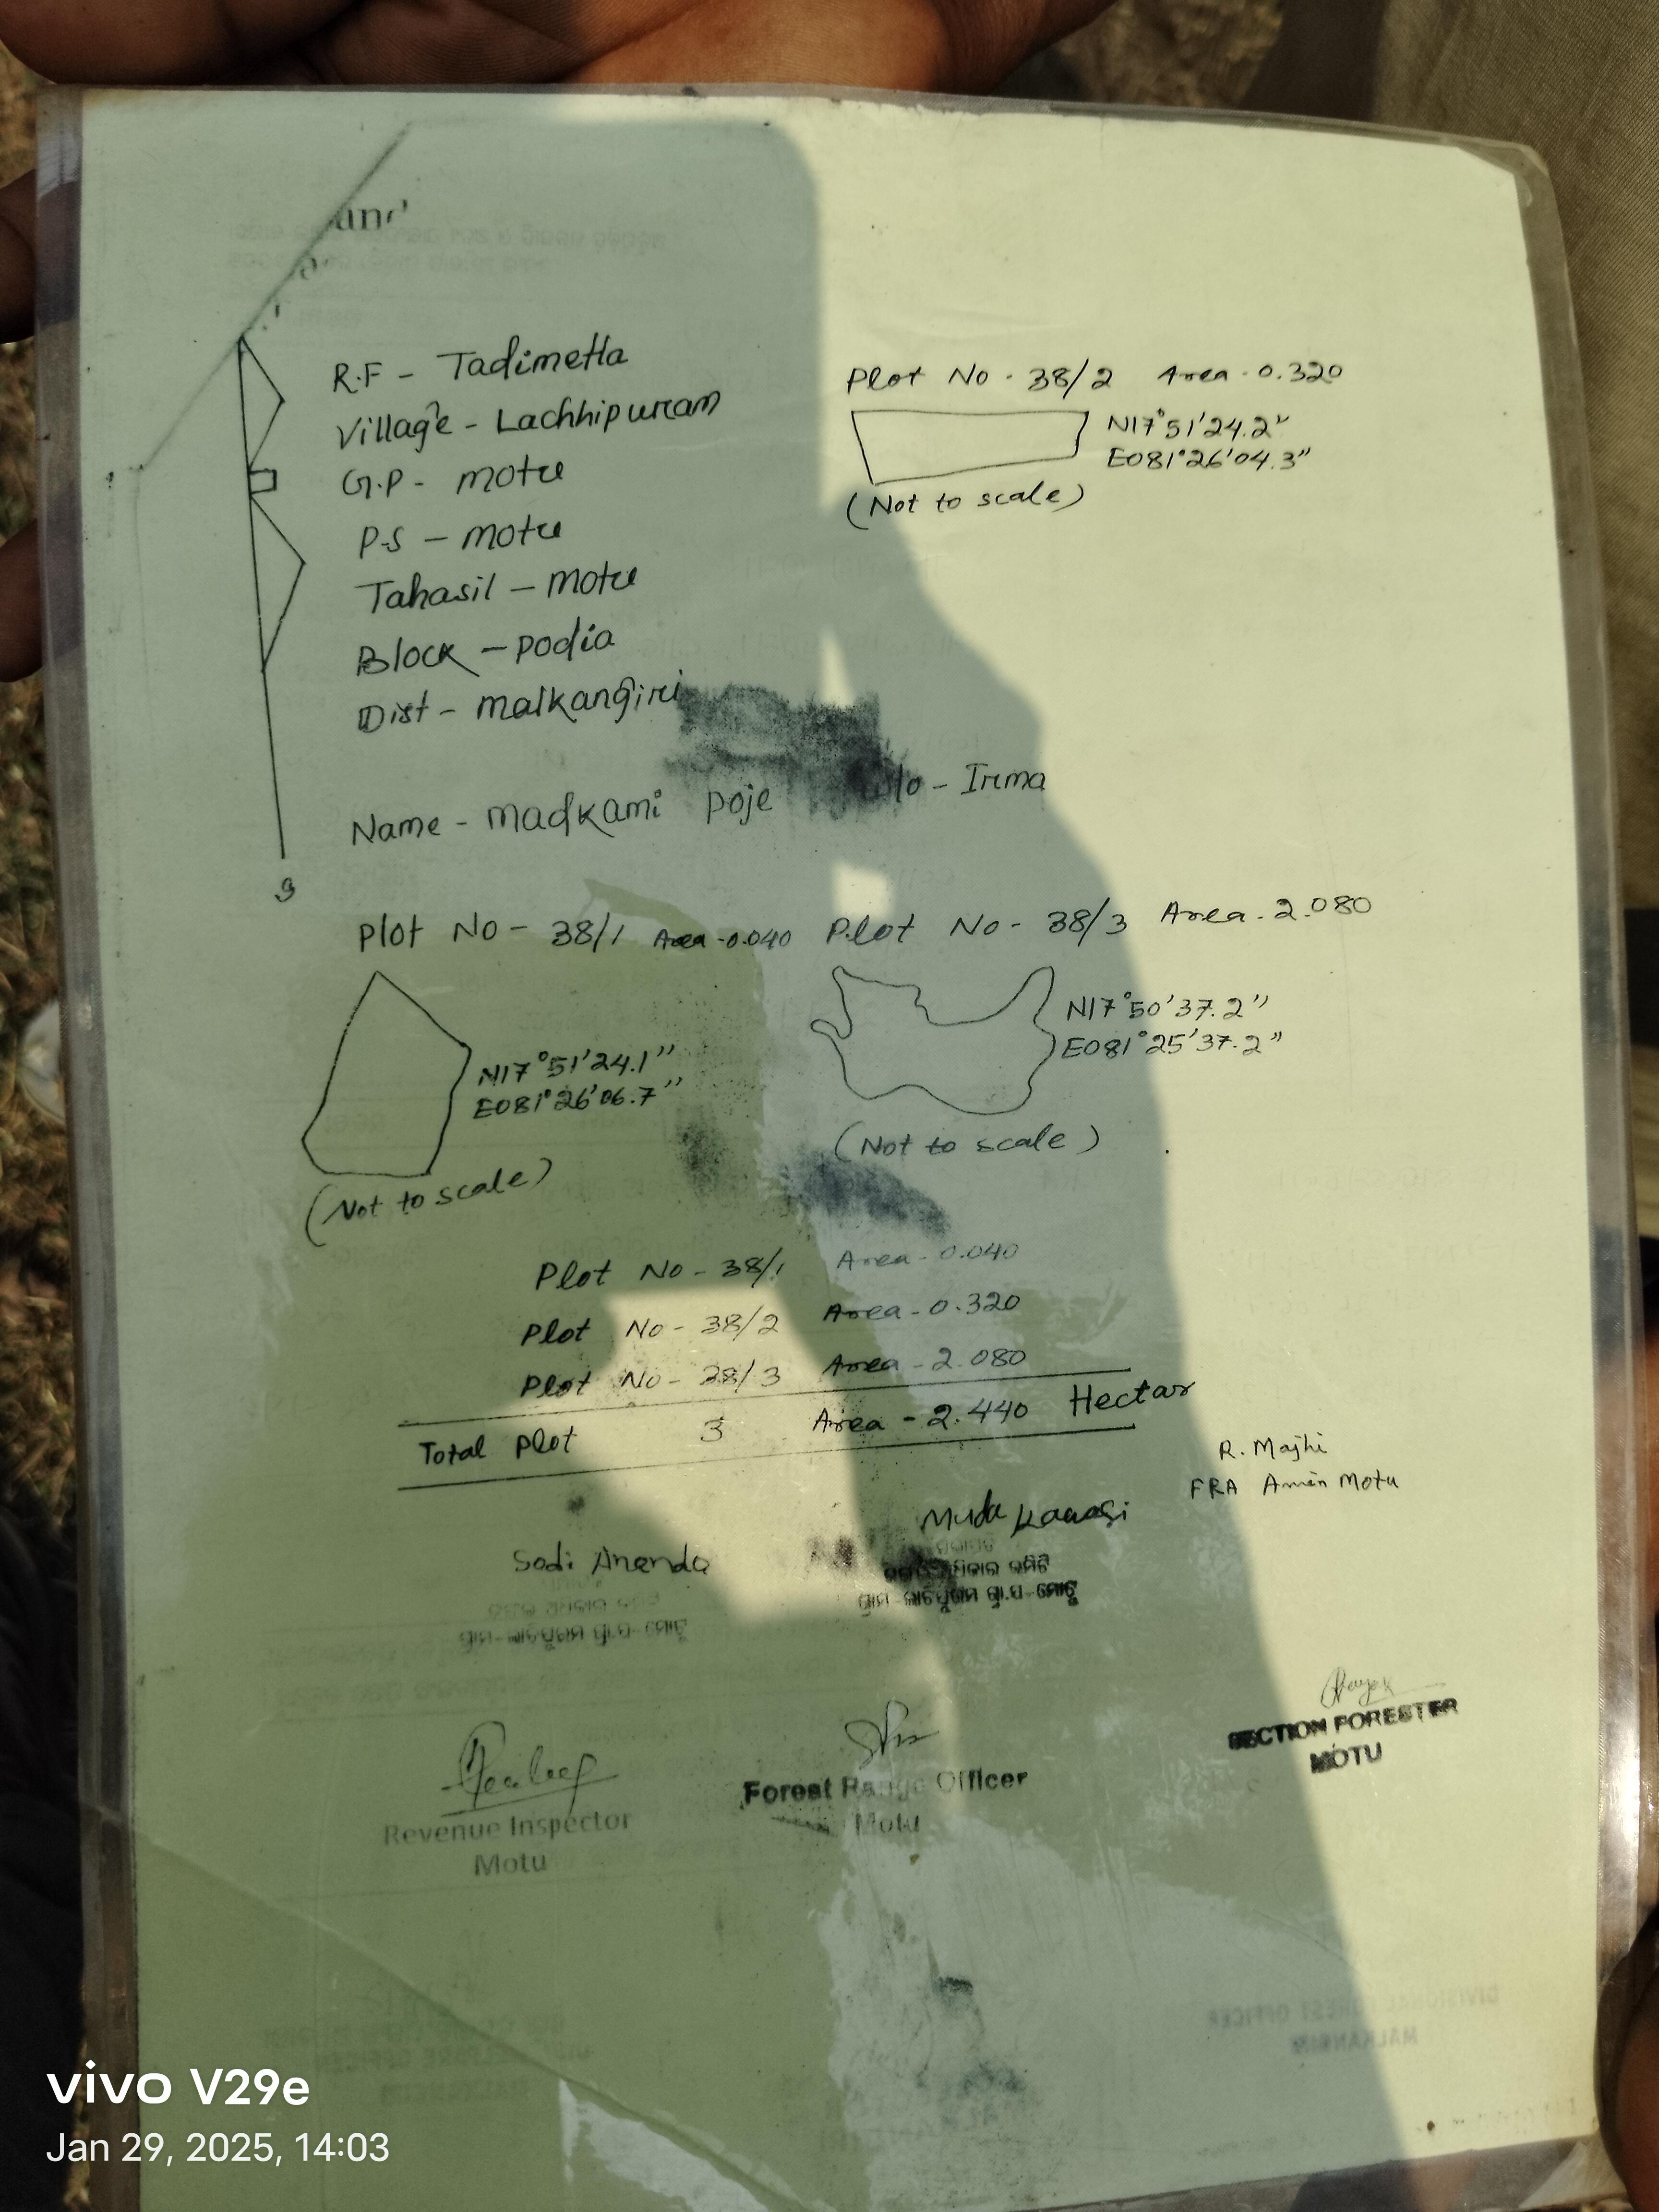 R.F - Tadimetla
Village - Lachhipuram
G.P - motu
P.S - motu
Tahasil - motu
Block - podia
Dist - malkangiri
Plot No - 38/2 Area - 0.320
N17°51'24.2"
E081°26'04.3"
(Not to scale)
Name - madkami poje - Irma
Plot No - 38/1 Area - 0.040
N17°51'24.1"
E081°26'06.7"
(Not to scale)
Plot No - 38/3 Area - 2.080
N17°50'37.2"
E081°25'37.2"
(Not to scale)
Plot No - 38/1 Area - 0.040
Plot No - 38/2 Area - 0.320
Plot No - 38/3 Area - 2.080
Total plot 3 Area - 2.440 Hectar
R. Majhi
FRA Amin Motu
Sodi Ananda
Muda kawasi
Revenue Inspector
Motu
Forest Range Officer
Motu
SECTION FORESTER
MOTU
vivo V29e
Jan 29, 2025, 14:03